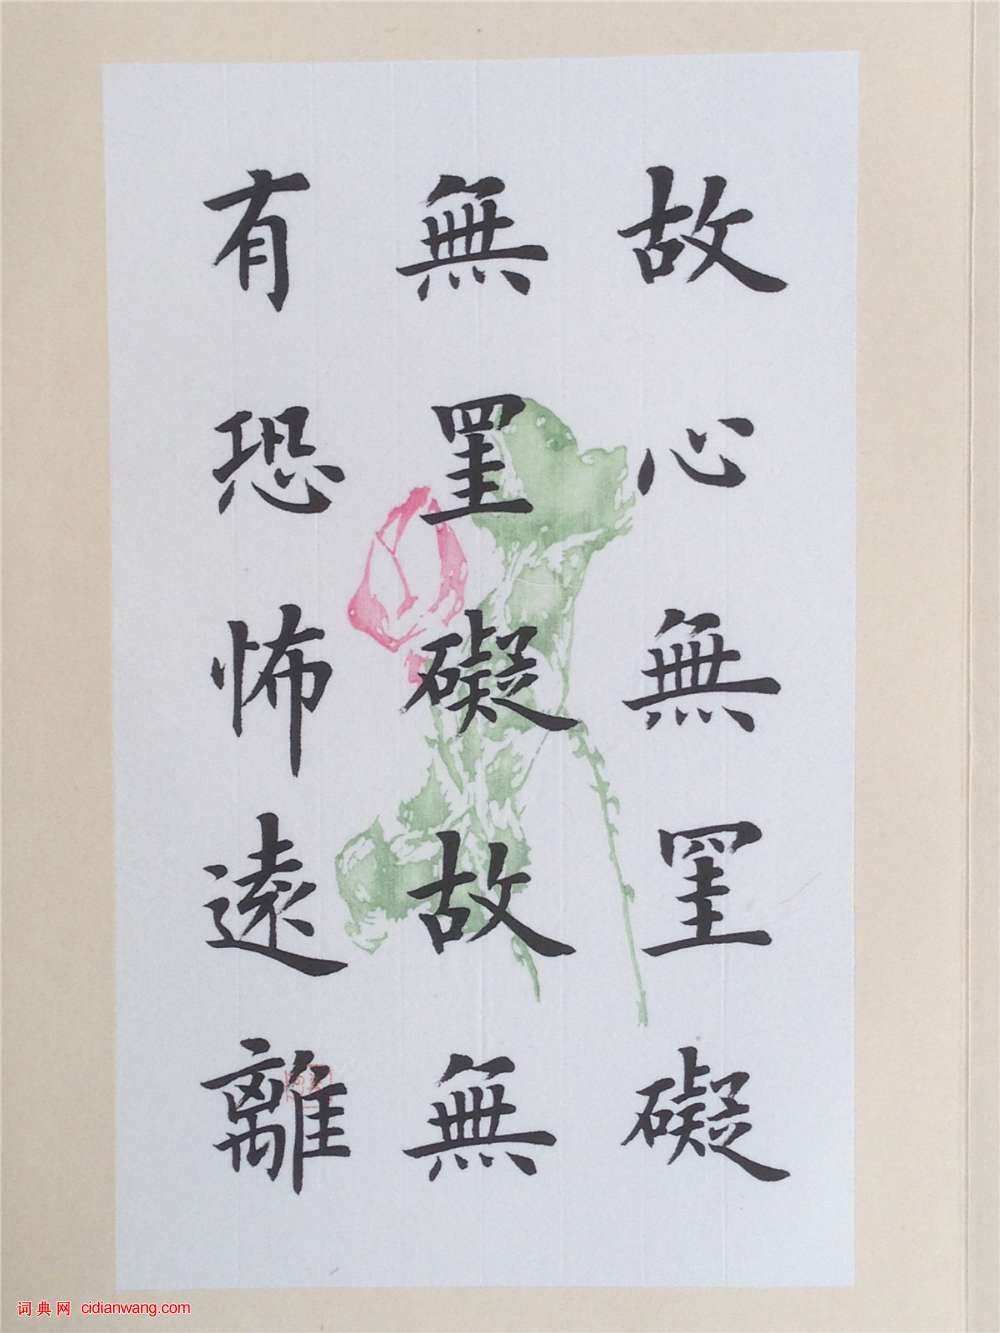 故心無罣礙
無罣礙故無
有恐怖遠離
词典网 cidianwang.com